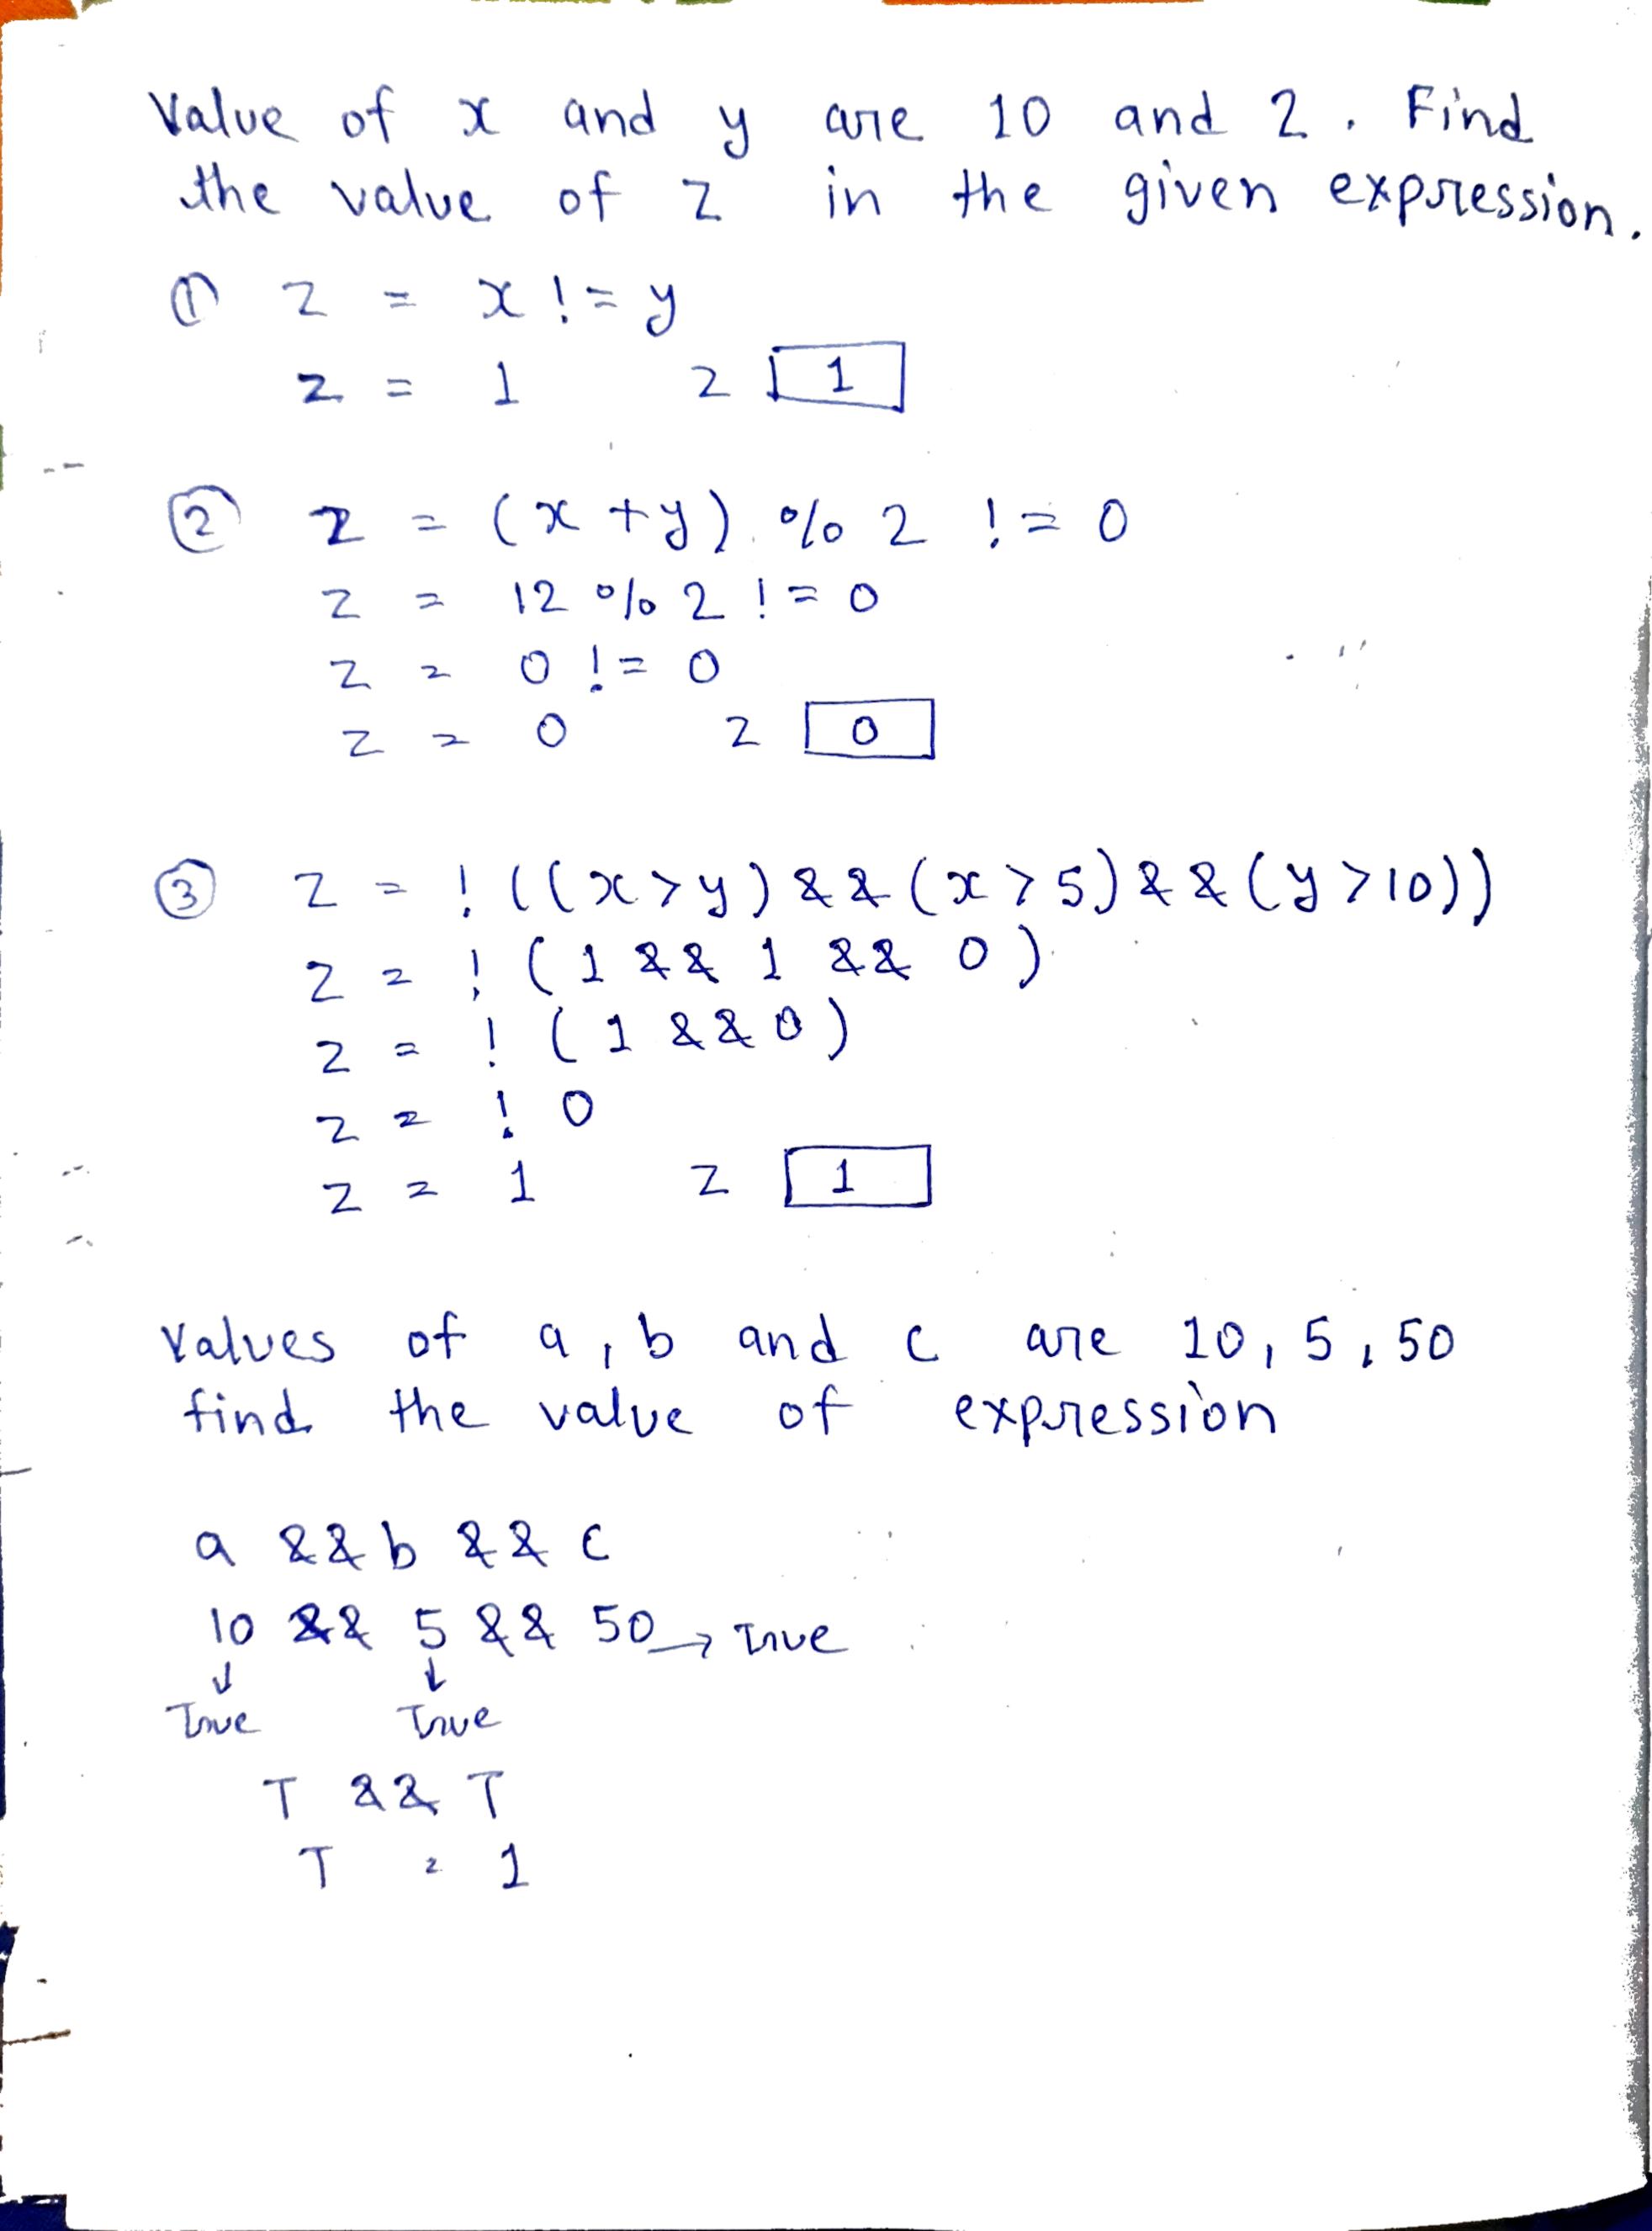 Value of x and y are 10 and 2. Find
the value of z in the given expression.
① z = x != y
z = 1 z 1
② z = (x + y) % 2 != 0
z = 12 % 2 != 0
z = 0 != 0
z = 0 z 0
③ z = ! ((x > y) && (x > 5) && (y > 10))
z = ! (1 && 1 && 0)
z = ! (1 && 0)
z = ! 0
z = 1 z 1
Values of a, b and c are 10, 5, 50
find the value of expression
a && b && c
10 && 5 && 50 → True
↓ ↓
True True
T && T
T = 1